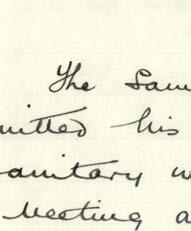 The San
mitted his
anitary w
Meeting a